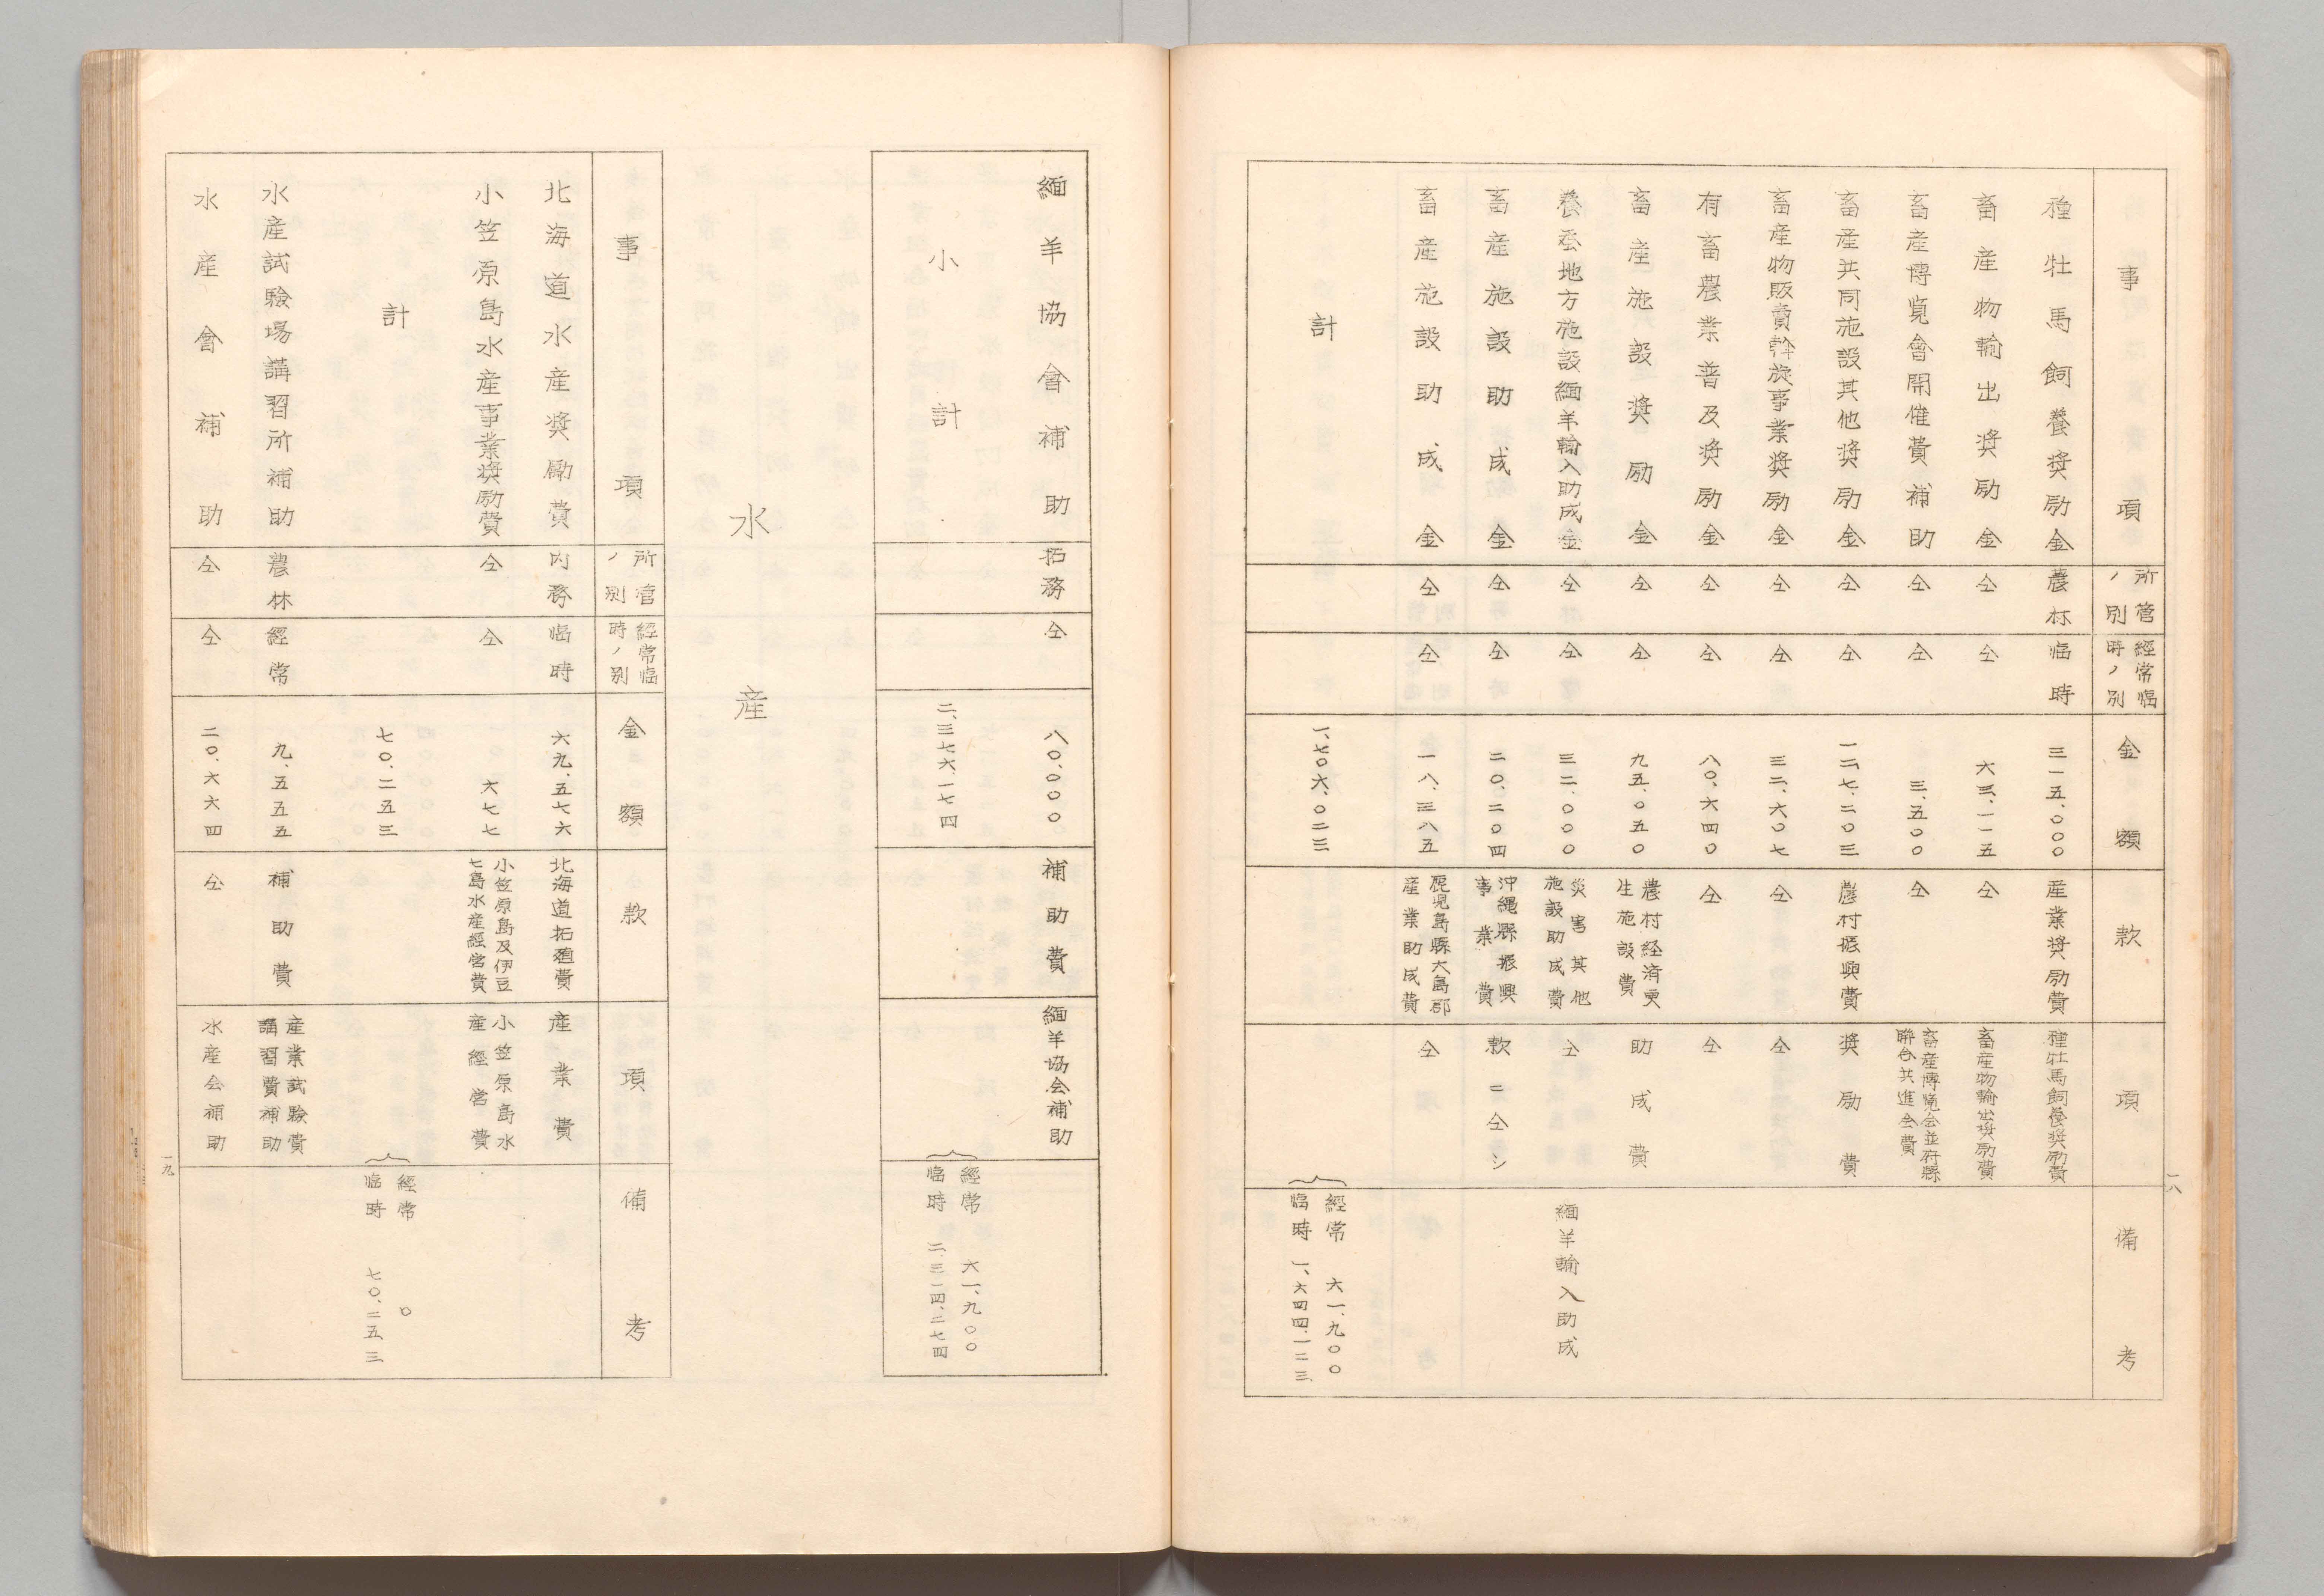 事項 所管ノ別 經常臨時ノ別 金額 款 項 備考
種牡馬飼養奨励金 農林 臨時 三一五、〇〇〇 産業奨励費 種牡馬飼養奨励費
畜産物輸出奨励金 仝 仝 六三、一一五 仝 畜産物輸出奨励費
畜産博覧會開催費補助 仝 仝 三、五〇〇 仝 畜産博覧会並府縣聯合共進会費
畜産共同施設其他奨励金 仝 仝 一二七、二〇三 農村振興費 奨励費
畜産物販賣斡旋事業奨励金 仝 仝 三二、六〇七 仝 仝
有畜農業普及奨励金 仝 仝 八〇、六四〇 仝 仝
畜産施設奨励金 仝 仝 九五、〇五〇 農村経済更生施設費 助成費
養蚕地方施設緬羊輸入助成金 仝 仝 三二、〇〇〇 災害其他施設助成費 仝 緬羊輸入助成
畜産施設助成金 仝 仝 二〇、二〇四 沖縄縣振興事業費 款ニ仝シ
畜産施設助成金 仝 仝 一八、三八五 鹿児島縣大島郡産業助成費 仝
計 一、七〇六、〇二三 經常 六一、九〇〇
臨時 一、六四四、一二三
一八
緬羊協會補助 拓務 仝 八〇、〇〇〇 補助費 緬羊協会補助
小計 二、三七六、一七四 經常 六一、九〇〇
臨時 二、三一四、二七四
水産
事項 所管ノ別 經常臨時ノ別 金額 款 項 備考
北海道水産奨励費 内務 臨時 六九、五七六 北海道拓殖費 産業費
小笠原島水産事業奨励費 仝 仝 六七七 小笠原島及伊豆七島水産経営費 小笠原島水産経営費
計 七〇、二五三 經常 〇
臨時 七〇、二五三
水産試驗場講習所補助 農林 經常 九、五五五 補助費 産業試驗費講習費補助
水産會補助 仝 仝 二〇、六六四 仝 水産会補助
一九